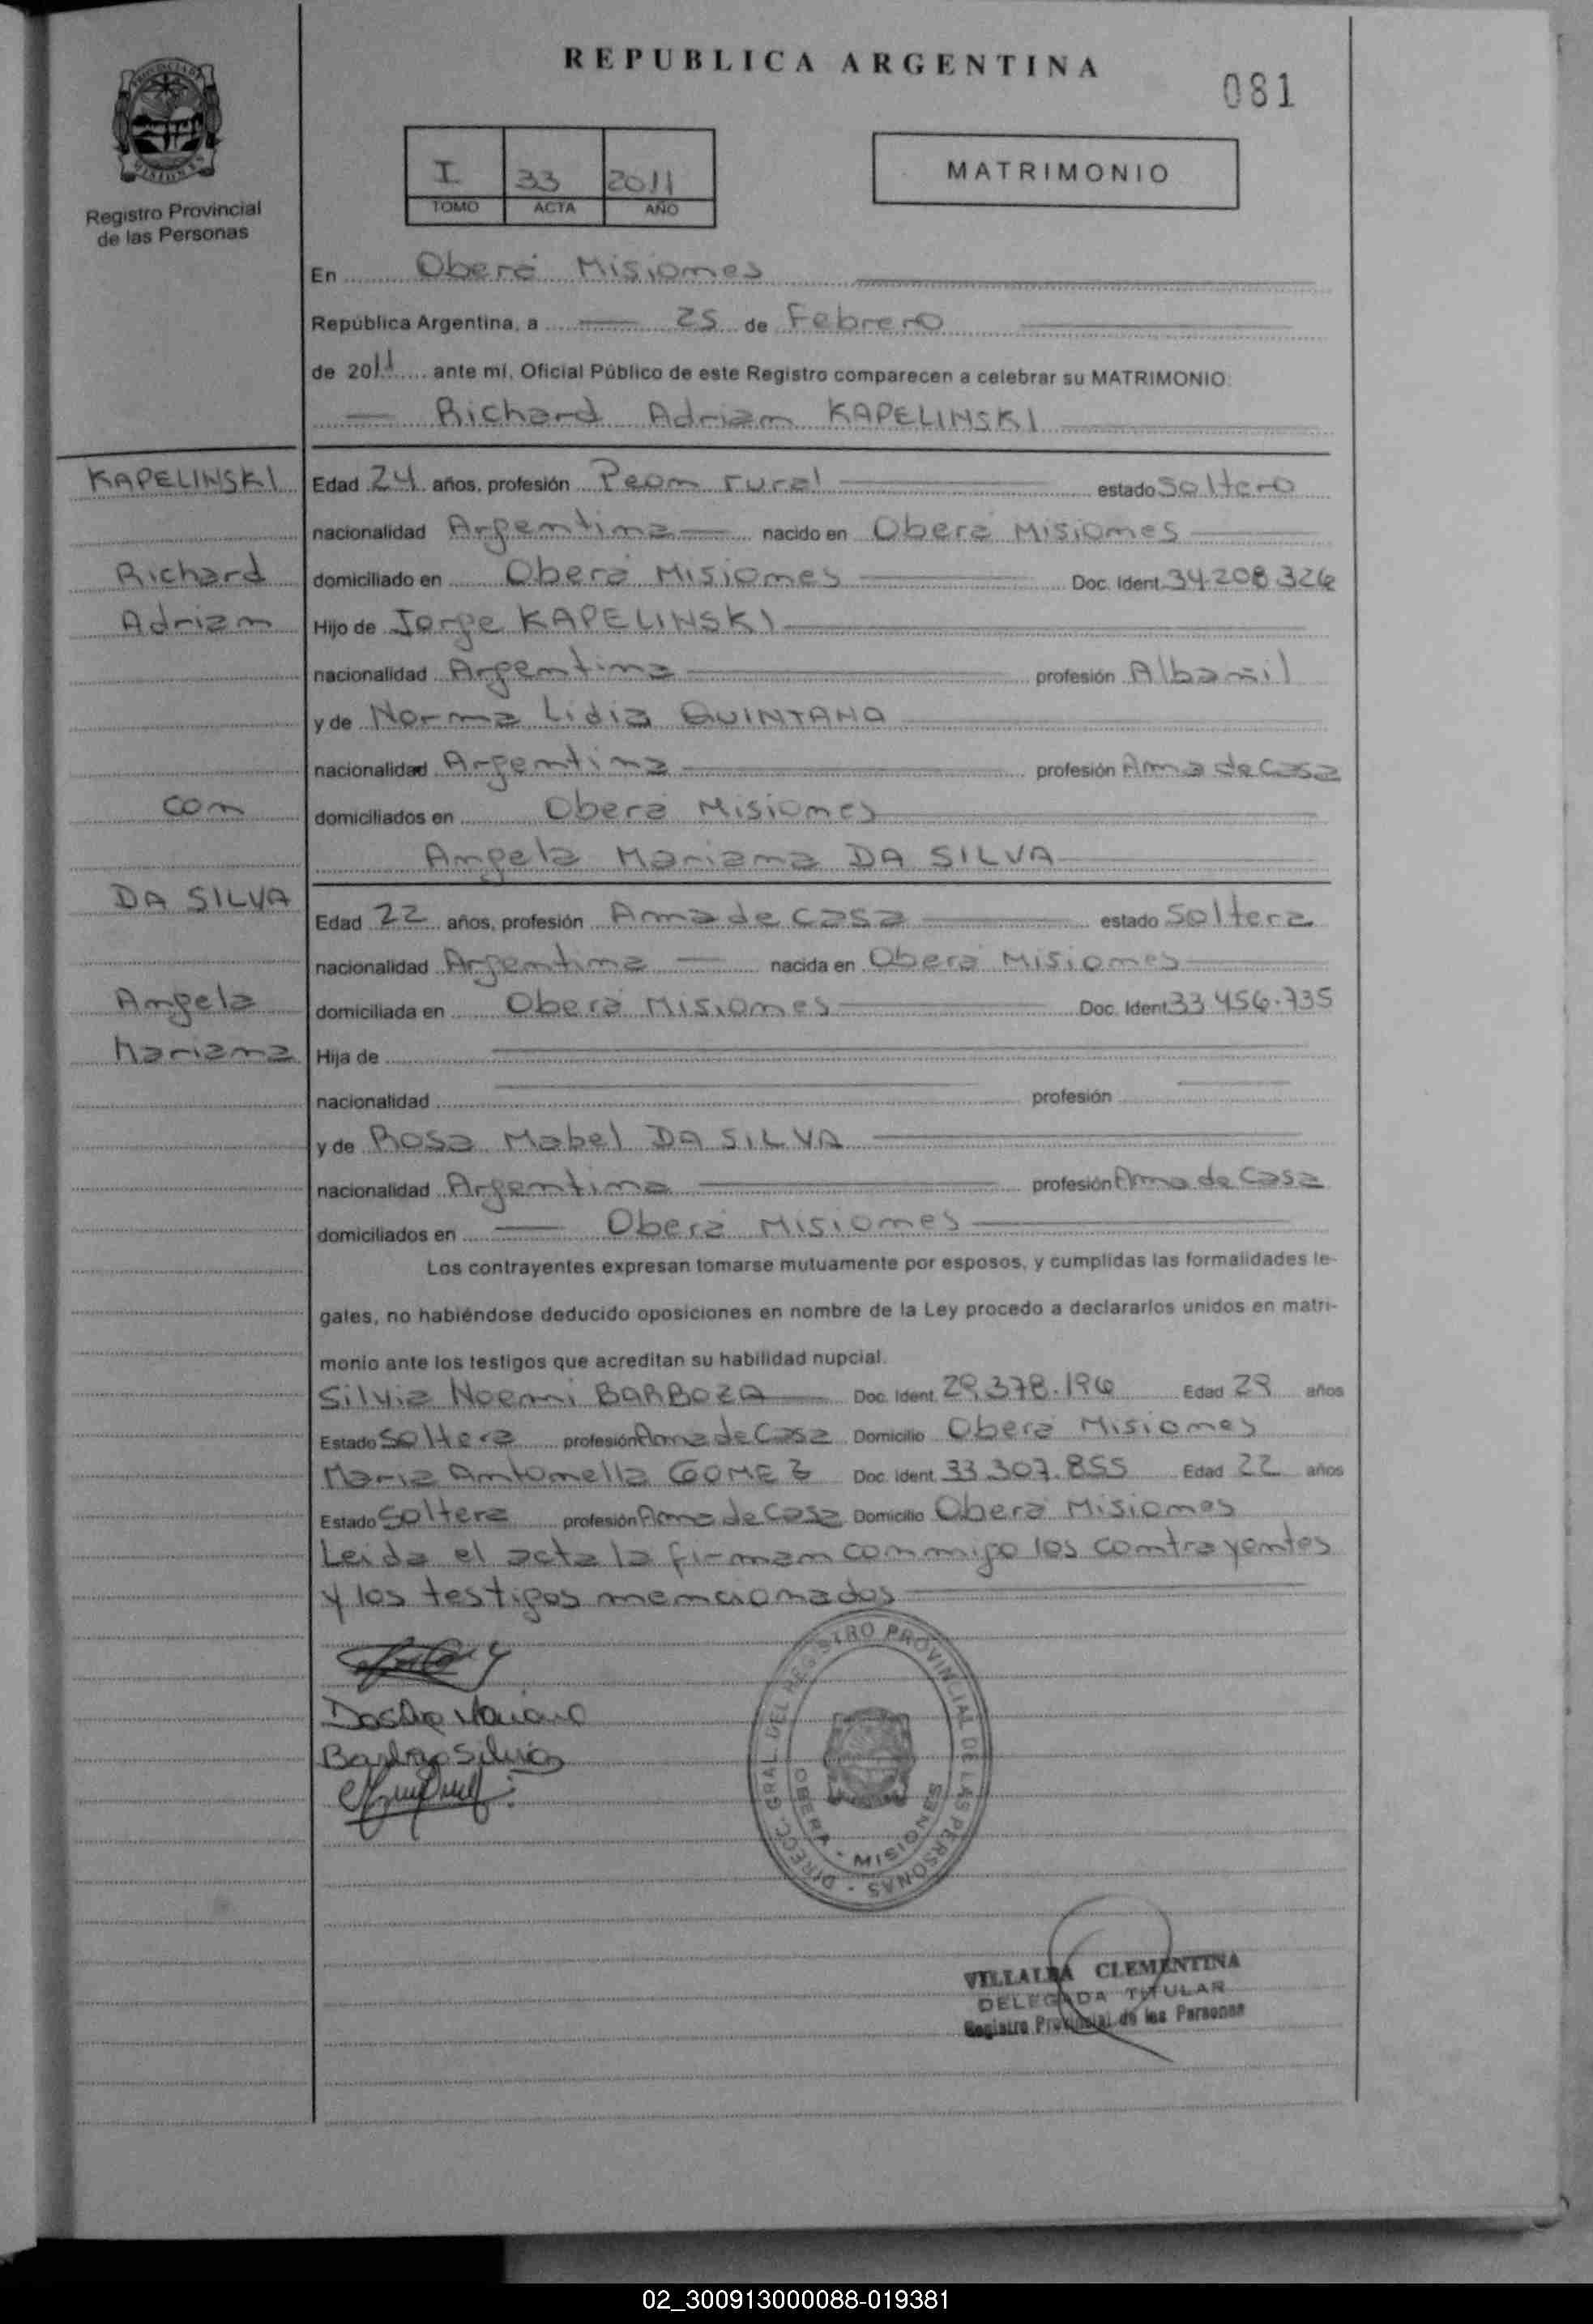 REPUBLICA ARGENTINA
081
I 33 2011
TOMO ACTA AÑO
MATRIMONIO
Registro Provincial
de las Personas
En Oberá Misiones
República Argentina, a 25 de Febrero
de 2011 ante mí, Oficial Público de este Registro comparecen a celebrar su MATRIMONIO:
Richard Adrian KAPELINSKI
KAPELINSKI
Richard
Adrian
con
DA SILVA
Angela
Mariana
Edad 24 años, profesión Peon rural estado Soltero
nacionalidad Argentina nacido en Oberá Misiones
domiciliado en Oberá Misiones Doc. Ident. 34.208.326
Hijo de Jorge KAPELINSKI
nacionalidad Argentina profesión Albañil
y de Norma Lidia QUINTANA
nacionalidad Argentina profesión Ama de Casa
domiciliados en Oberá Misiones
Angela Mariana DA SILVA
Edad 22 años, profesión Ama de casa estado Soltera
nacionalidad Argentina nacida en Oberá Misiones
domiciliada en Oberá Misiones Doc. Ident. 33.456.735
Hija de
nacionalidad profesión
y de Rosa Mabel DA SILVA
nacionalidad Argentina profesión Ama de Casa
domiciliados en Oberá Misiones
Los contrayentes expresan tomarse mutuamente por esposos, y cumplidas las formalidades le-
gales, no habiéndose deducido oposiciones en nombre de la Ley procedo a declararlos unidos en matri-
monio ante los testigos que acreditan su habilidad nupcial.
Silvia Noemi BARBOZA Doc. Ident. 29.378.196 Edad 29 años
Estado Soltera profesión Ama de Casa Domicilio Oberá Misiones
Maria Antonella GOMEZ Doc. Ident. 33.307.855 Edad 22 años
Estado Soltera profesión Ama de Casa Domicilio Oberá Misiones
Leida el acta la firman conmigo los contrayentes
y los testigos mencionados
DIRECC. GRAL. DEL REGISTRO PROVINCIAL DE LAS PERSONAS
OBERA - MISIONES
VILLALBA CLEMENTINA
DELEGADA TITULAR
Registro Provincial de las Personas
02_300913000088-019381